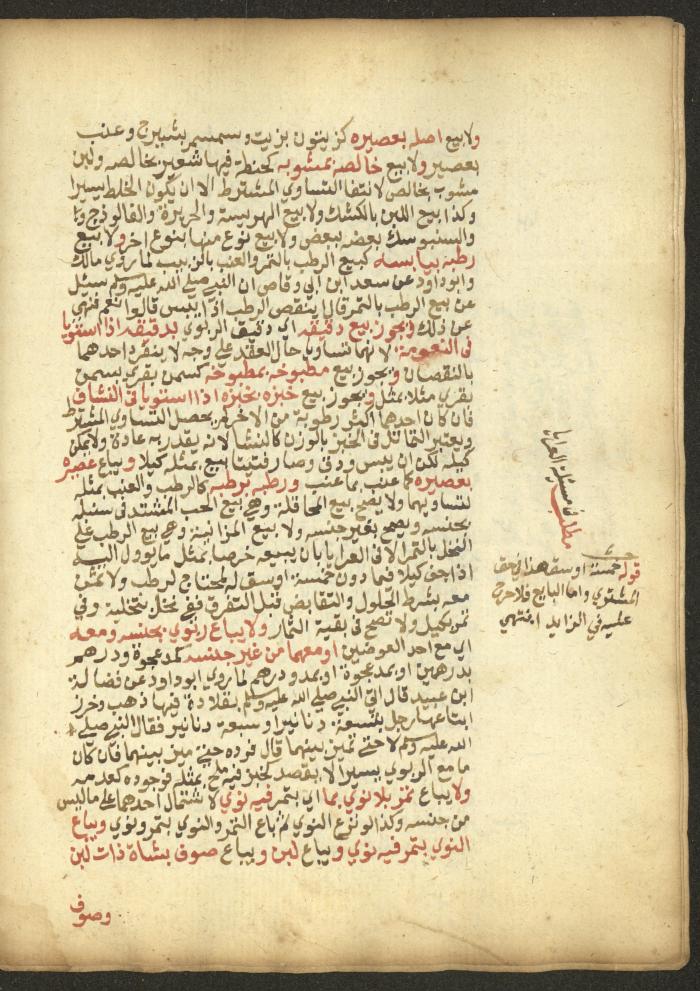 ولا بيع اصله بعصيره كزيتون بزيت وسمسم بشيرج وعنب
بعصير ولا بيع خالصه بمشوبه كحنطة فيها شعير بخالصه ولبن
مشوب بخالص لانتفا التساوي المشترط الا ان يكون الخلط يسيرا
وكذا بيع اللبن بالكشك ولا بيع الهريسة والحريرة والفالوذج
والسنبوسك بعضه ببعض ولا بيع نوع منها بنوع اخر ولا بيع
رطبه بيابسه كبيع الرطب بالتمر والعنب بالزبيب لما روي مالك
وابوداود عن سعد ابن ابي وقاص ان النبي صلي الله عليه وسلم سئل
عن بيع الرطب بالتمر قال اينقص الرطب اذا يبس قالوا نعم فنهي
عن ذلك ويجوز بيع دقيقه اي دقيق الربوي بدقيقه اذا استويا
في النعومة لانهما تساويا حال العقد علي وجه لا ينفرد احدهما
بالنقصان ويجوز بيع مطبوخه بمطبوخه كسمن بقري بسمن
بقري مثلا بمثل ويجوز بيع خبزه بخبزه اذا استويا في النشاف
فان كان احدهما اكثر رطوبة من الاخر لم يحصل التساوي المشترط
ويعتبر التماثل في الخبز بالوزن كالنشا لانه يقدر به عادة ولا يمكن
كيله لكن ان يبس ودق وصار فتيتا بيع بمثله كيلا ويباع عصيره
بعصيره كما عنب بما عنب ورطبه برطبه كالرطب والعنب بمثله
لتساويهما ولا يصح بيع المحاقلة وهي بيع الحب المشتد في سنبله
بجنسه ويصح بغير جنسه ولا بيع المزابنة وهي بيع الرطب علي
النخل بالتمر الا في العرايا بان يبيعه خرصا بمثل ما يوول اليه
اذا جف كيلا فيما دون خمسة اوسق لمحتاج لرطب ولا ثمن
معه بشرط الحلول والتقابض قبل التفرق ففي نخل بتخلية وفي
تمر بكيل ولا تصح في بقية الثمار ولا يباع ربوي بجنسه ومعه
اي مع احد العوضين او معهما من غير جنسه كمد عجوة ودرهم
بدرهمين او بمد عجوة او بمد ودرهم لما روي ابوداود عن فضالة
ابن عبيد قال اتي النبي صلي الله عليه وسلم بقلادة فيها ذهب وخرز
ابتاعها رجل بتسعة دنانير او سبعة دنانير فقال النبي صلي
الله عليه وسلم لا حتي تميز بينهما قال فرده حتي ميز بينهما فان كان
ما مع الربوي يسيرا لا يقصد كخبز فيه ملح بمثله فوجوده كعدمه
ولا يباع تمر بلا نوي بما اي بتمر فيه نوي لاشتمال احدهما علي ما ليس
من جنسه وكذا لو نزع النوي ثم باع التمر والنوي بتمر ونوي ويباع
النوي بتمر فيه نوي ويباع لبن ويباع صوف بشاة ذات لبن
وصوف
مطلب
في مسئلة العرايا
قوله خمسة اوسق هذا في حق
المشتري واما البايع فلا حرج
عليه في الزايد انتهي